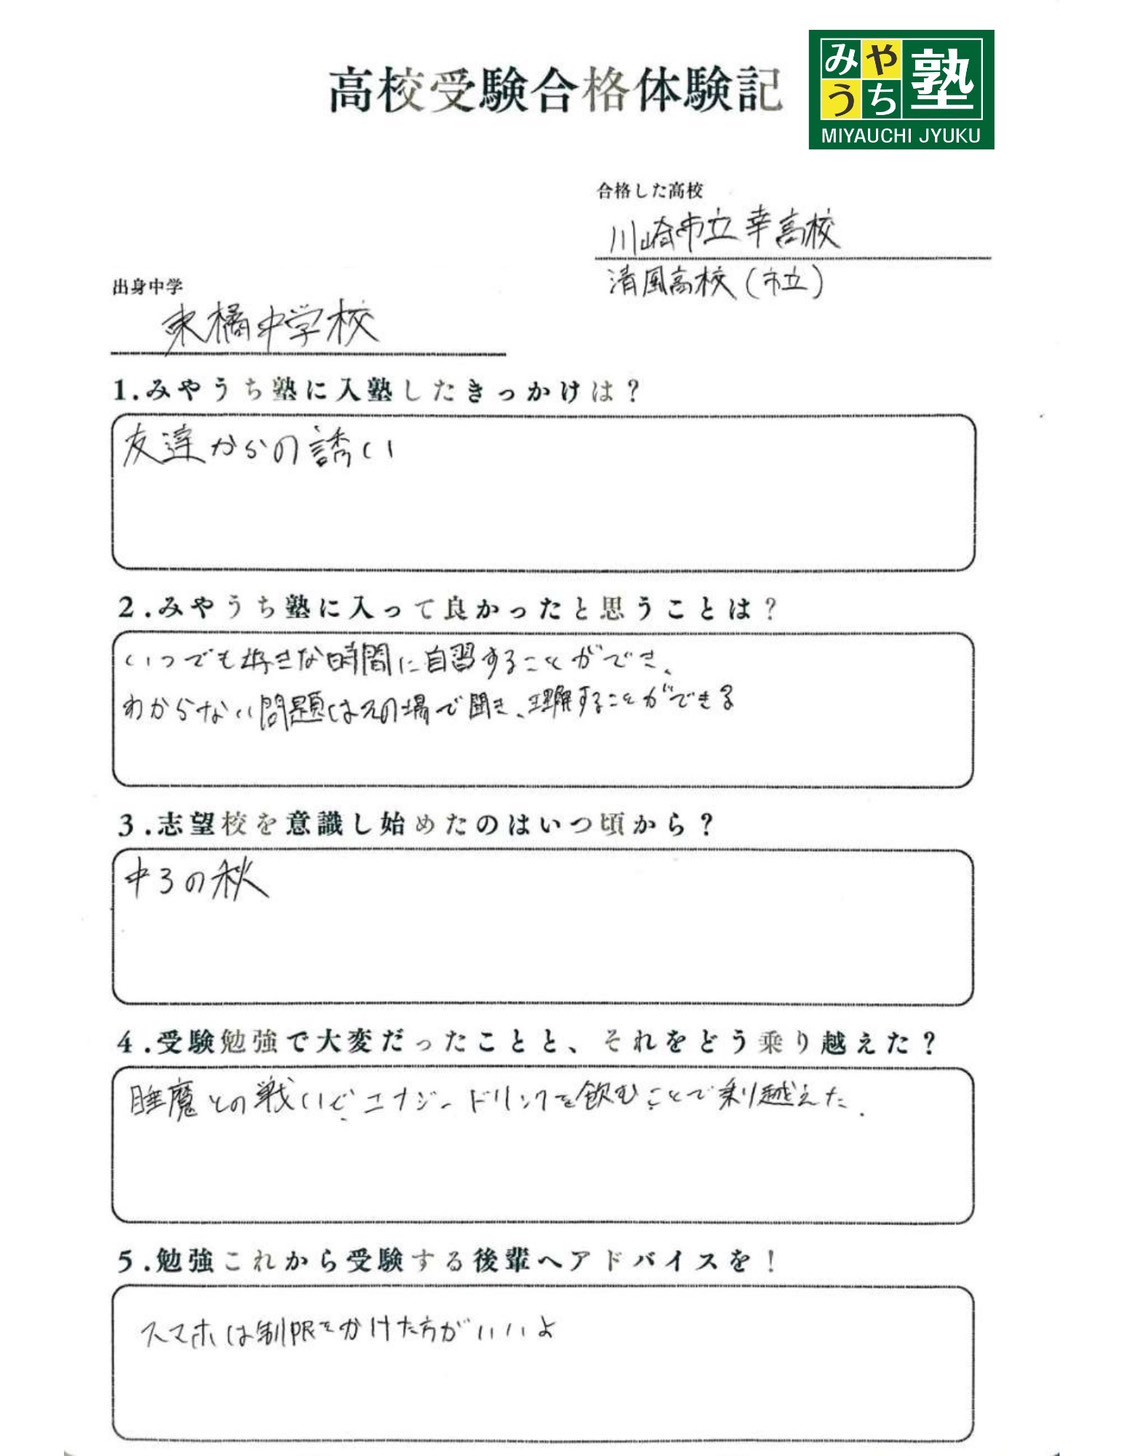 高校受験合格体験記
みやうち塾
MIYAUCHI JYUKU
合格した高校
川崎市立幸高校
清風高校(市立)
出身中学
東橘中学校
1.みやうち塾に入塾したきっかけは?
友達からの誘い
2.みやうち塾に入って良かったと思うことは?
いつでも好きな時間に自習することができ、
わからない問題はその場で聞き、理解することができる
3.志望校を意識し始めたのはいつ頃から?
中3の秋
4.受験勉強で大変だったことと、それをどう乗り越えた?
睡魔との戦いで、エナジードリンクを飲むことで乗り越えた.
5.勉強これから受験する後輩へアドバイスを!
スマホは制限をかけた方がいいよ